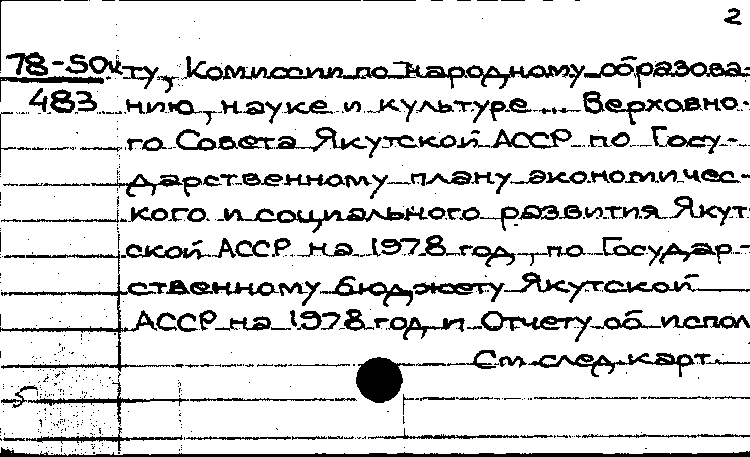 2
78-50к ту, Комиссии по народному образова-
483 нию, науке и культуре ... Верховно-
го Совета Якутской АССР по Госу-
дарственному плану экономичес-
кого и социального развития Якут-
ской АССР на 1978 год, по Государ-
ственному бюджету Якутской
АССР на 1978 год и Отчету об испол
См. след. карт.
5